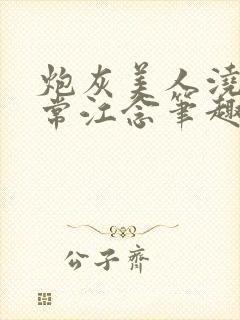 炮灰美人浇
常江念笔趣
公子齐